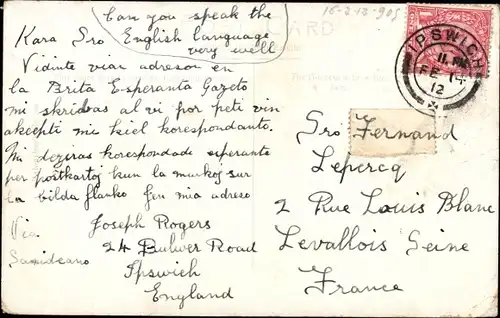 Can you speak the
English language
very well
Kara Sro.
Vidinte vian adreson en
la Brita Esperanta Gazeto
mi skribas al vi por peti vin
akcepti mi kiel korespondanto.
Mi deziras korespondadi esperante
per postkartoj kun la markoj sur
la bilda flanko Jen mia adreso
Via
Samideano
Joseph Rogers
24 Bulwer Road
Ipswich
England
IPSWICH
11. PM
FE 14
12
Sro Fernand
Lepercq
2 Rue Louis Blanc
Levallois Seine
France